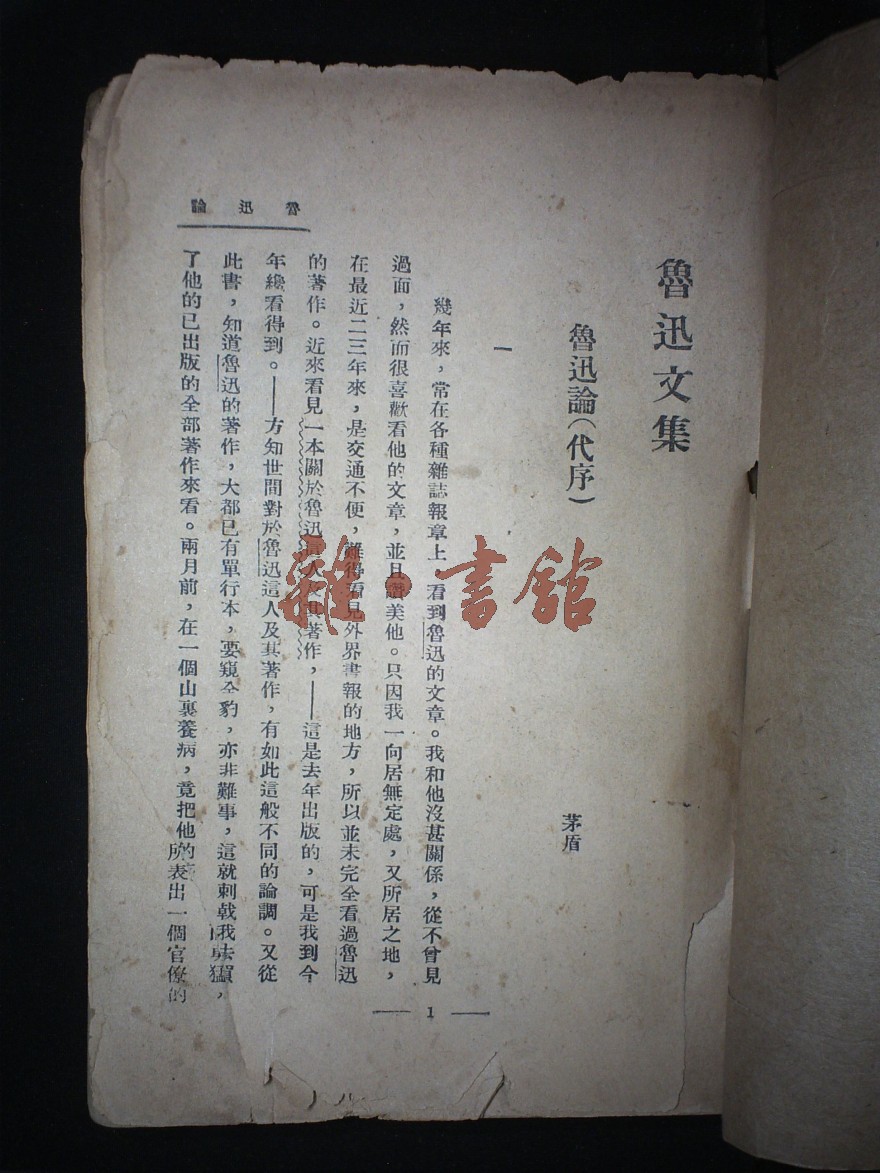 魯迅文集
魯迅論(代序)
茅盾
一
幾年來,常在各種雜誌報章上,看到魯迅的文章。我和他沒甚關係,從不曾見
過面,然而很喜歡看他的文章,並且讚美他。只因我一向居無定處,又所居之地,
在最近二三年來,是交通不便,難得看見外界書報的地方,所以並未完全看過魯迅
的著作。近來看見一本關於魯迅這人及其著作,——這是去年出版的,可是我到今
年纔看得到。——方知世間對於魯迅這人及其著作,有如此這般不同的論調。又從
此書,知道魯迅的著作,大都已有單行本,要窺全豹,亦非難事,這就刺戟我去
了他的已出版的全部著作來看。兩月前,在一個山裏養病,竟把他的所表出一個官僚的
魯迅論
— 1 —
雜·書館